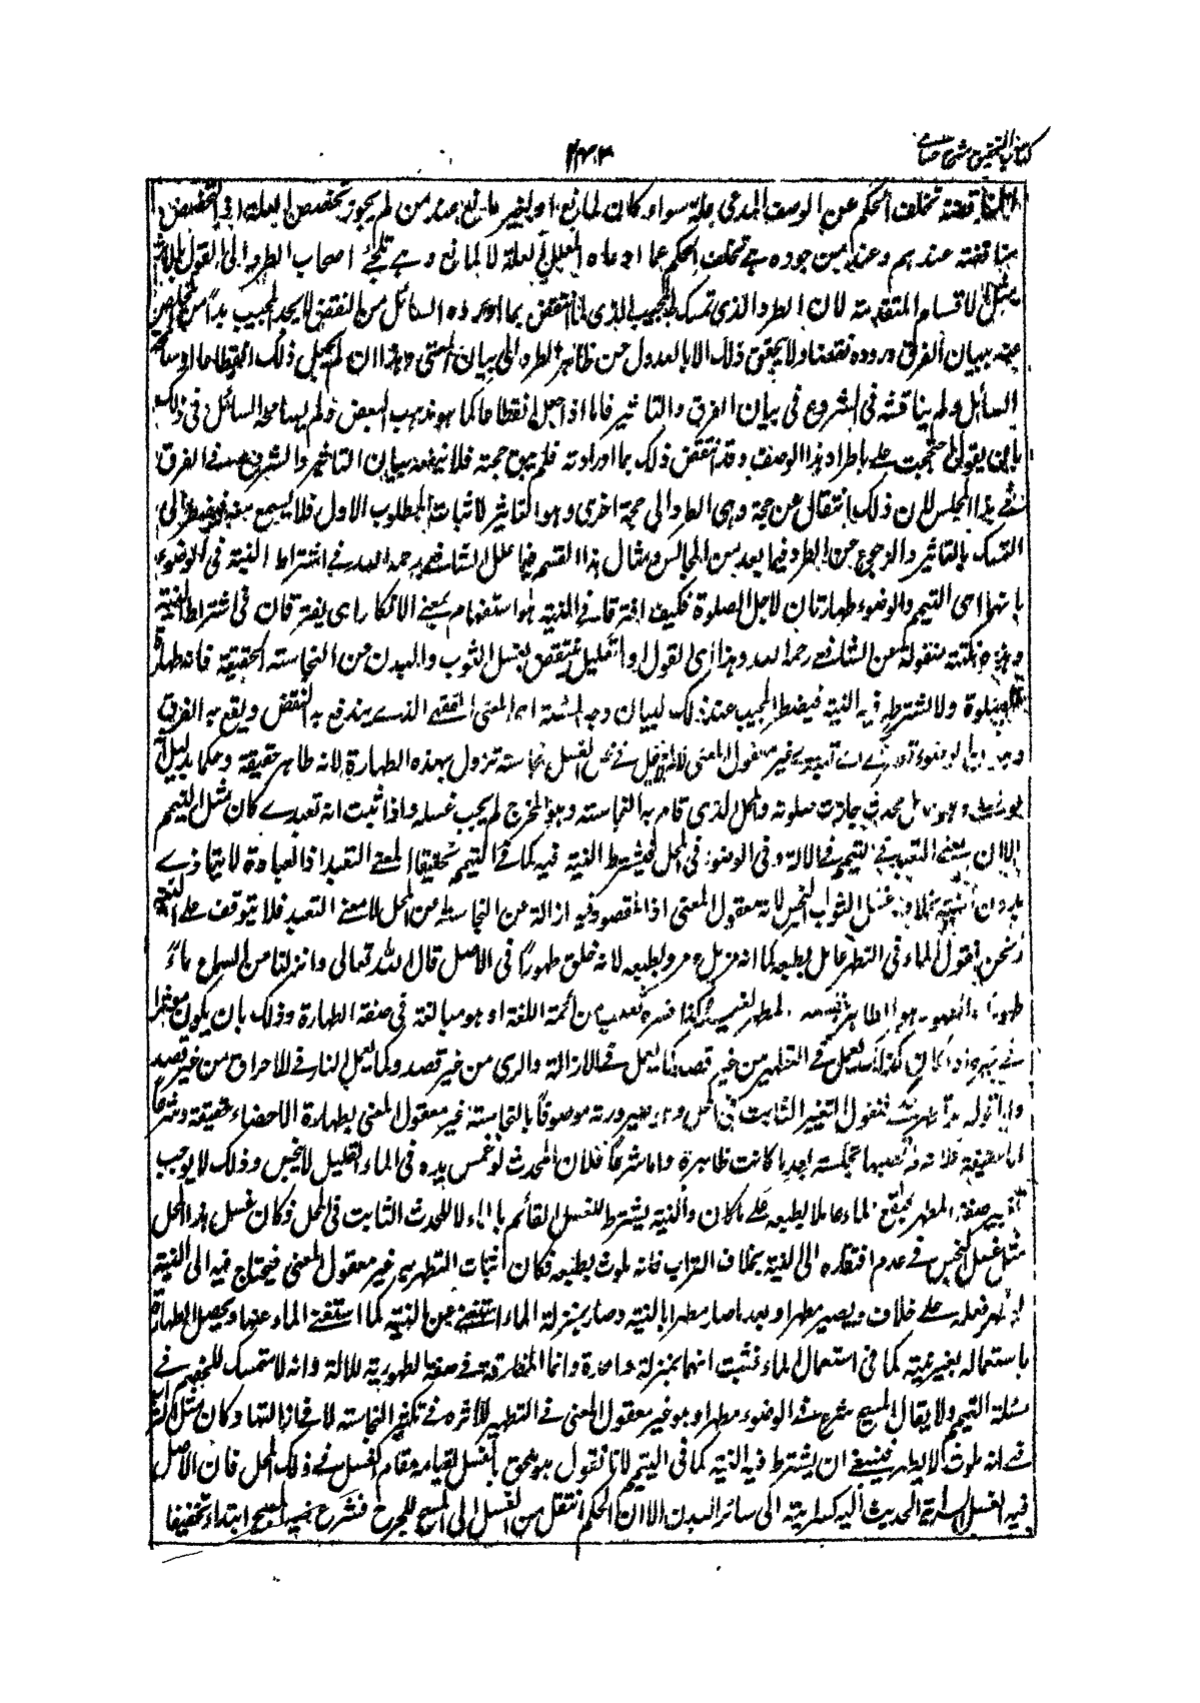 كتاب التحقيق شرح حسامى
٢٤٣
المناقضة تخلف الحكم عن الوصف المدعى علة سواء كان لمانع او لغير مانع عند من لم يجوز تخصيص العلة اذ التخصيص
مناقضة عندهم وعند من جوزه هے تخلف الحكم عما ادعاه المعلل علة لا لمانع وهے تلجئ اصحاب الطرد الى القول بالاثر
مثل الاقسام المتقدمة لان الطرد الذى تمسك به المجيب لما انتقض بما اورده السائل من النقض لا يجد المجيب بدا من المخلص
عنه ببيان الفرق وروده نقضا ولا يتحقق ذلك الا بالعدول عن ظاهر الطرد الى بيان المعنى وهذا ان لم يجعل ذلك انقطاعا او سامحه
السائل ولم يناقشه فى الشروع فى بيان الفرق والتاثير فاما اذا جعل انقطاعا كما هو مذهب البعض ولم يسامحه السائل فى ذلك
بان يقول احتججت علے باطراد هذا الوصف وقد انتقض ذلك بما اوردته فلم يبق حجة فلا ينفعه بيان التاثير والشروع فے الفرق
فے هذا المجلس لان ذلك انتقال عن حجة وهى الطرد الى حجة اخرى وهو التاثير لاثبات المطلوب الاول فلا يسمع منه فيضطر الى
التمسك بالتاثير والرجوع عن الطرد فيما بعد من المجالس ومثال هذا القسم فيما علل الشافعے رحمه الله فے اشتراط النية فى الوضوء
بانهما اى التيمم والوضوء طهارتان لاجل الصلوة فكيف افترقا فے النية هو استفهام بمعنے الانكار اى يفترقان فى اشتراط النية
وهذه نكتة منقولة عن الشافعے رحمه الله وهذا اى القول والتعليل ينتقض بغسل الثوب والبدن عن النجاسة الحقيقة فانه طهارة
للصلوة ولا تشترط فيه النية فيضطر المجيب عند ذلك لبيان وجه المسئلة اے المعنى الفقهے الذے يندفع به النقض ويقع به الفرق
وهو ان الوضوء تعبدے غير معقول المعنى لانه لا يعقل فے محل الغسل نجاسة تزول بهذه الطهارة لانه طاهر حقيقة وحكما بدليل
انه لو صلى وهو حامل محدث جازت صلوته والمحل الذى قام به النجاسة وهو المخرج لم يجب غسله واذا ثبت انه تعبدے كان مثل التيمم
الا ان معنے التعبد فے التيمم فے الالة وفى الوضوء فى المحل فيشترط النية فيه كما فى التيمم تحقيقا لمعنے التعبد اذ العبادة لا يتادے
بدون النية بخلاف غسل الثوب النجس لانه معقول المعنى اذ المقصود فيه ازالة عن النجاسة من المحل لا معنے التعبد فلا يتوقف علے النية
ونحن نقول الماء فى التطهر عامل بطبعه كما انه مزيل ومرو بطبعه لانه خلق طهورا فى الاصل قال الله تعالى وانزلنا من السماء ماء
طهورا والطهور هو الطاهر بنفسه المطهر لغيره كذا فسره ثعلب من ائمة اللغة او هو مبالغة فى صفة الطهارة وذلك بان يكون مؤثرا
فے غيره واذا كان كذلك يعمل فے التطهير من غير قصد كما يعمل فے الازالة والرى من غير قصد وكما يعمل النار فے الاحراق من غير قصد
الثابت فى المحل وهو صيرورته موصوفا بالنجاسة غير معقول المعنى لطهارة الاعضاء حقيقة وشرعا
اما حقيقة فلانه لم تصبها نجاسة كانت ظاهرة واما شرعا فلان المحدث لو غمس يده فى الماء القليل لا يتنجس وذلك لا يوجب
تغيير صفة المطهر فبقے الماء عاملا بطبعه علے ما كان والنية يشترط للغسل القائم بالماء لا للحدث الثابت فى المحل فكان غسل هذا المحل
مثل غسل النجس فے عدم افتقاره الى النية بخلاف التراب فانه ملوث بطبعه فكان اثبات التطهير به غير معقول المعنى فيحتاج فيه الى النية
مطهرا وبعد ما صار مطهرا بالنية وصار بمنزلة الماء استغنے عن النية كما استغنے الماء عنها ويحصل الطهارة
باستعماله بغير نية كما فى استعمال الماء فثبت انهما بمنزلة واحدة وانما المفارقة فے صفة الطهورية للالة وانه لا متمسك للخصم فے
مسئلة التيمم ولا يقال المسح شرع فے الوضوء مطهرا وهو غير معقول المعنى فے التطهير للاثره فے تكثير النجاسة لا فے ازالتها وكان مثل التراب
فے انه ملوث لا يطهر فينبغے ان يشترط فيه النية كما فى التيمم لانا نقول هو ملحق بالغسل لقيامه مقام الغسل فے ذلك المحل فان الاصل
فيه الغسل لسراية الحدث اليه كسرايته الى سائر البدن الا ان الحكم انتقل من الغسل الى المسح للحرج فشرع فيه المسح ابتداء تخفيفا